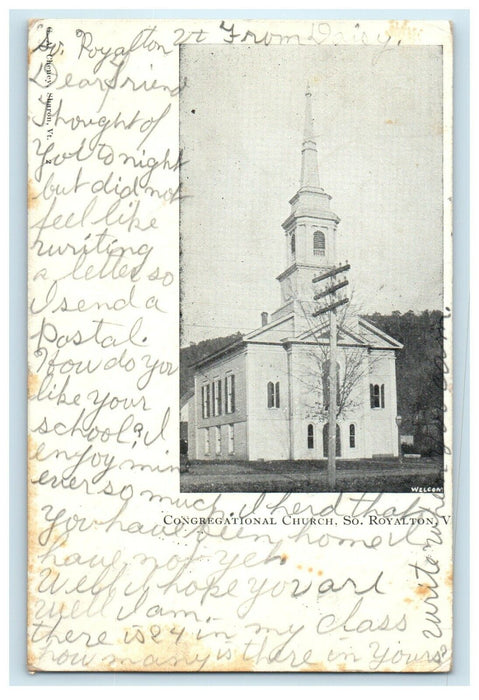 So. Royalton Vt From Daisy.
Dear friend
I thought of
You to night
but did not
feel like
writing
a letter so
I send a
Postal.
How do you
like your
school? I
enjoy mine
ever so much. I herd that
You have been home I
have not yet.
Well I hope you are
well I am.
there is 24 in my class
how many is there in Yours?
write
Sharon, Vt.
2
WELCOM
CONGREGATIONAL CHURCH. SO. ROYALTON, V